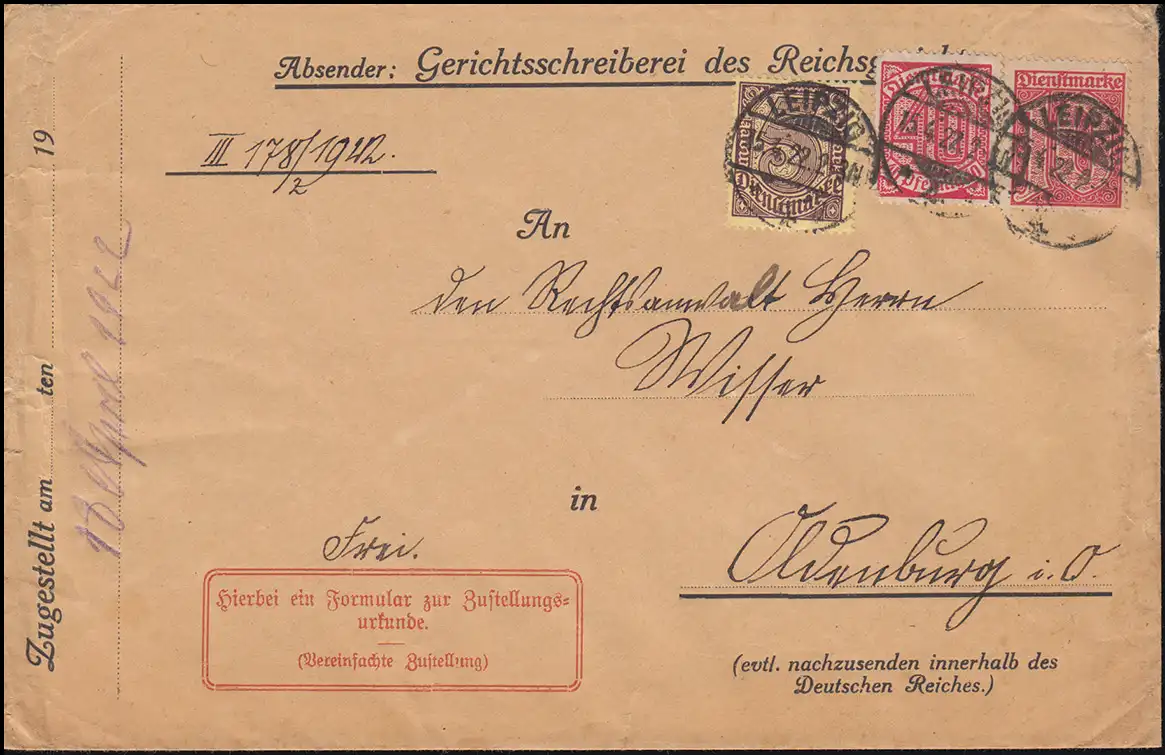 Absender: Gerichtsschreiberei des
Dienstmarke
Dienstmarke
Dienstmarke
LEIPZIG
LEIPZIG
III 178/1922.
2
An
den Rechtsanwalt Herrn
Wisser
in
Oldenburg i. O.
(evtl. nachzusenden innerhalb des
Deutschen Reiches.)
Frei.
Hierbei ein Formular zur Zustellungs=
urkunde.
(Vereinfachte Zustellung)
Zugestellt am ten 19
April 1922